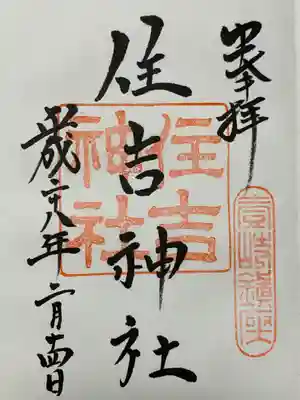 奉拝
壹岐鎮座
住吉神社
住吉
神社
平成二十八年二月十四日